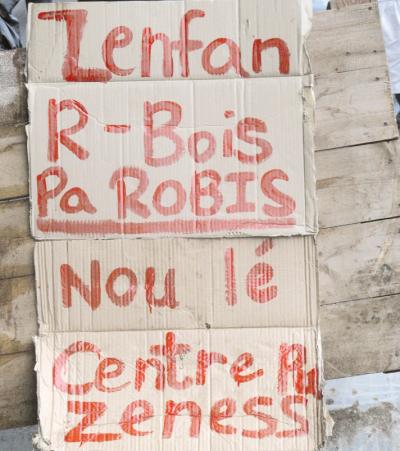 Zenfan
R-Bois
Pa ROBIS
Nou lé
Centre Pu
zeness